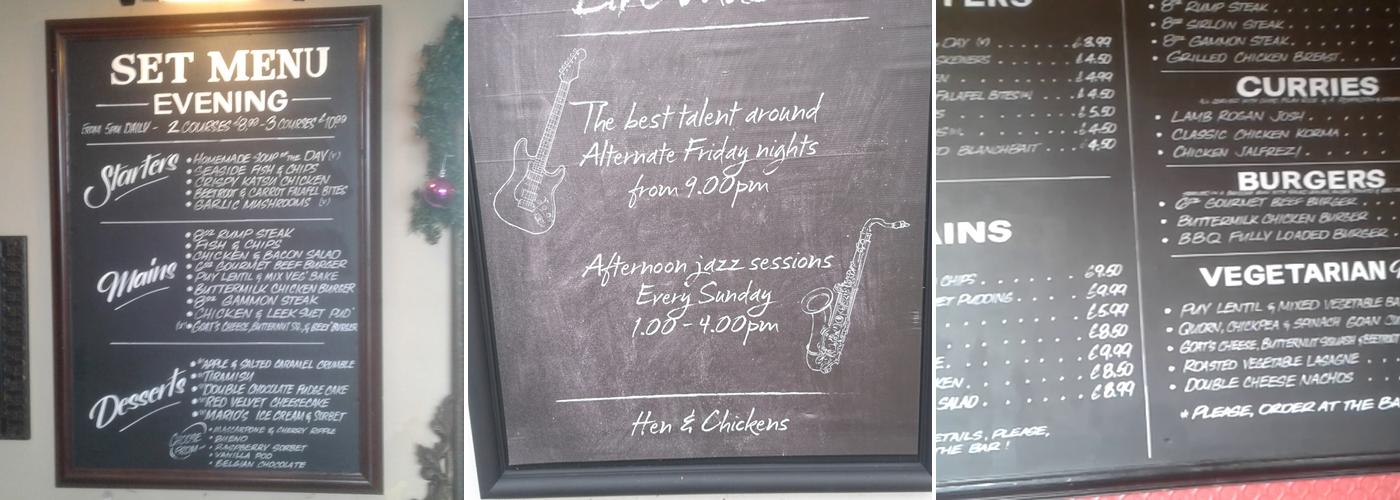 SET MENU
EVENING
FROM 5PM DAILY - 2 COURSES £8.99 - 3 COURSES £10.99
Starters
• HOMEMADE SOUP OF THE DAY (V)
• SEASIDE FISH & CHIPS
• CRISPY KATSU CHICKEN
• BEETROOT & CARROT FALAFEL BITES
• GARLIC MUSHROOMS (V)
Mains
• 8oz RUMP STEAK
• FISH & CHIPS
• CHICKEN & BACON SALAD
• 6oz GOURMET BEEF BURGER
• PUY LENTIL & MIX VEG' BAKE
• BUTTERMILK CHICKEN BURGER
• 8oz GAMMON STEAK
• CHICKEN & LEEK SUET PUD'
(V)• GOAT'S CHEESE, BUTTERNUT SQ, & BEET' BURGER
Desserts
• APPLE & SALTED CARAMEL CRUMBLE
• TIRAMISU
• DOUBLE CHOCOLATE FUDGE CAKE
• RED VELVET CHEESECAKE
• MARIO'S ICE CREAM & SORBET
CHOOSE FROM
• MASCARPONE & CHERRY RIPPLE
• BUENO
• RASPBERRY SORBET
• VANILLA POD
• BELGIAN CHOCOLATE
The best talent around
Alternate Friday nights
from 9.00pm
Afternoon jazz sessions
Every Sunday
1.00 - 4.00pm
Hen & Chickens
DAY (V) £3.99
£4.50
£4.99
FALAFEL BITES (V) £4.50
£5.50
£4.50
BLANCHBAIT £4.50
AINS
CHIPS £9.50
ET PUDDING £9.99
£5.99
£8.50
£9.99
KEN £8.50
SALAD £8.99
ETAILS, PLEASE,
THE BAR!
• 8oz RUMP STEAK
• 8oz SIRLOIN STEAK
• 8oz GAMMON STEAK
• GRILLED CHICKEN BREAST
CURRIES
• LAMB ROGAN JOSH
• CLASSIC CHICKEN KORMA
• CHICKEN JALFREZI
BURGERS
• 6oz GOURMET BEEF BURGER
• BUTTERMILK CHICKEN BURGER
• BBQ FULLY LOADED BURGER
VEGETARIAN
• PUY LENTIL & MIXED VEGETABLE
• QUORN, CHICKPEA & SPINACH GOAN
• GOAT'S CHEESE, BUTTERNUT SQUASH & BEETROOT
• ROASTED VEGETABLE LASAGNE
• DOUBLE CHEESE NACHOS
* PLEASE, ORDER AT THE BA